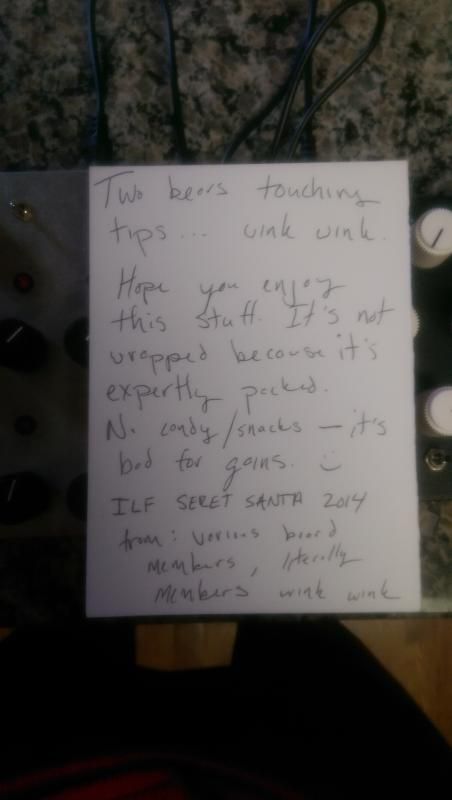 Two bears touching
tips... wink wink.
Hope you enjoy
this stuff. It's not
wrapped because it's
expertly packed.
No candy/snacks — it's
bad for gains. :)
ILF SERET SANTA 2014
from: various board
members, literally
members wink wink